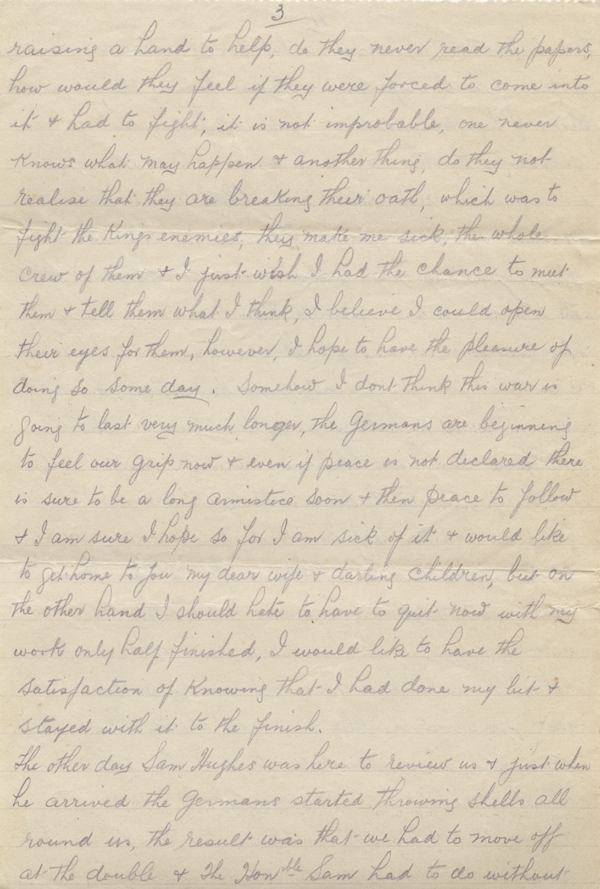 3
raising a hand to help, do they never read the papers,
how would they feel if they were forced to come into
it & had to fight, it is not improbable, one never
knows what may happen & another thing, do they not
realise that they are breaking their oath, which was to
fight the Kings enemies, they make me sick, the whole
crew of them & I just wish I had the chance to meet
them & tell them what I think, I believe I could open
their eyes for them, however, I hope to have the pleasure of
doing so some day. Somehow I dont think this war is
going to last very much longer, the Germans are beginning
to feel our grip now & even if peace is not declared there
is sure to be a long armistice soon & then peace to follow
& I am sure I hope so for I am sick of it & would like
to get home to you my dear wife & darling children, but on
the other hand I should hate to have to quit now with my
work only half finished, I would like to have the
satisfaction of knowing that I had done my bit &
stayed with it to the finish.
The other day Sam Hughes was here to review us & just when
he arrived the Germans started throwing shells all
round us, the result was that we had to move off
at the double & The Honble Sam had to do without